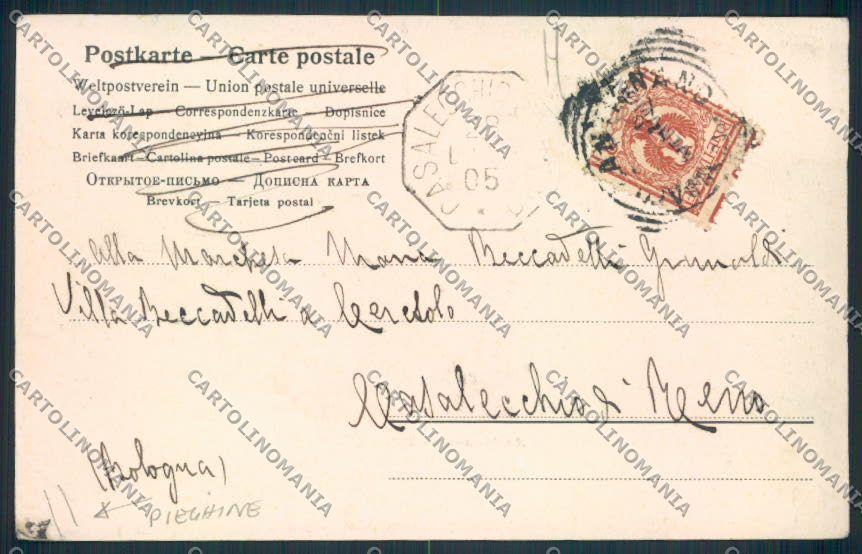 Postkarte — Carte postale
Weltpostverein — Union postale universelle
Levelező-Lap — Correspondenzkarte — Dopisnice
Karta korespondencyjna — Korespondenční listek
Briefkaart — Cartolina postale — Postcard — Brefkort
Открытое-письмо — Дописна карта
Brevkort — Tarjeta postal
CASALECCHIO
28
05
alla Marchesa Maria Beccadelli Grimaldi
Villa Beccadelli a Ceretolo
Casalecchio di Reno
(Bologna)
PIEGHINE
CARTOLINOMANIA